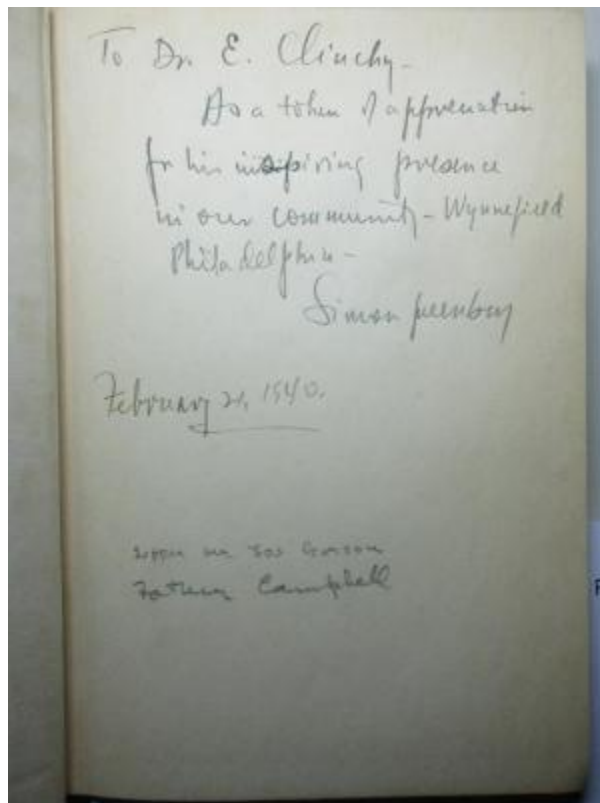 To Dr. E. Clinchy -
As a token of appreciation
for his inspiring presence
in our community - Wynnefield
Philadelphia -
Simon Greenberg
February 21, 1940.
Father Campbell